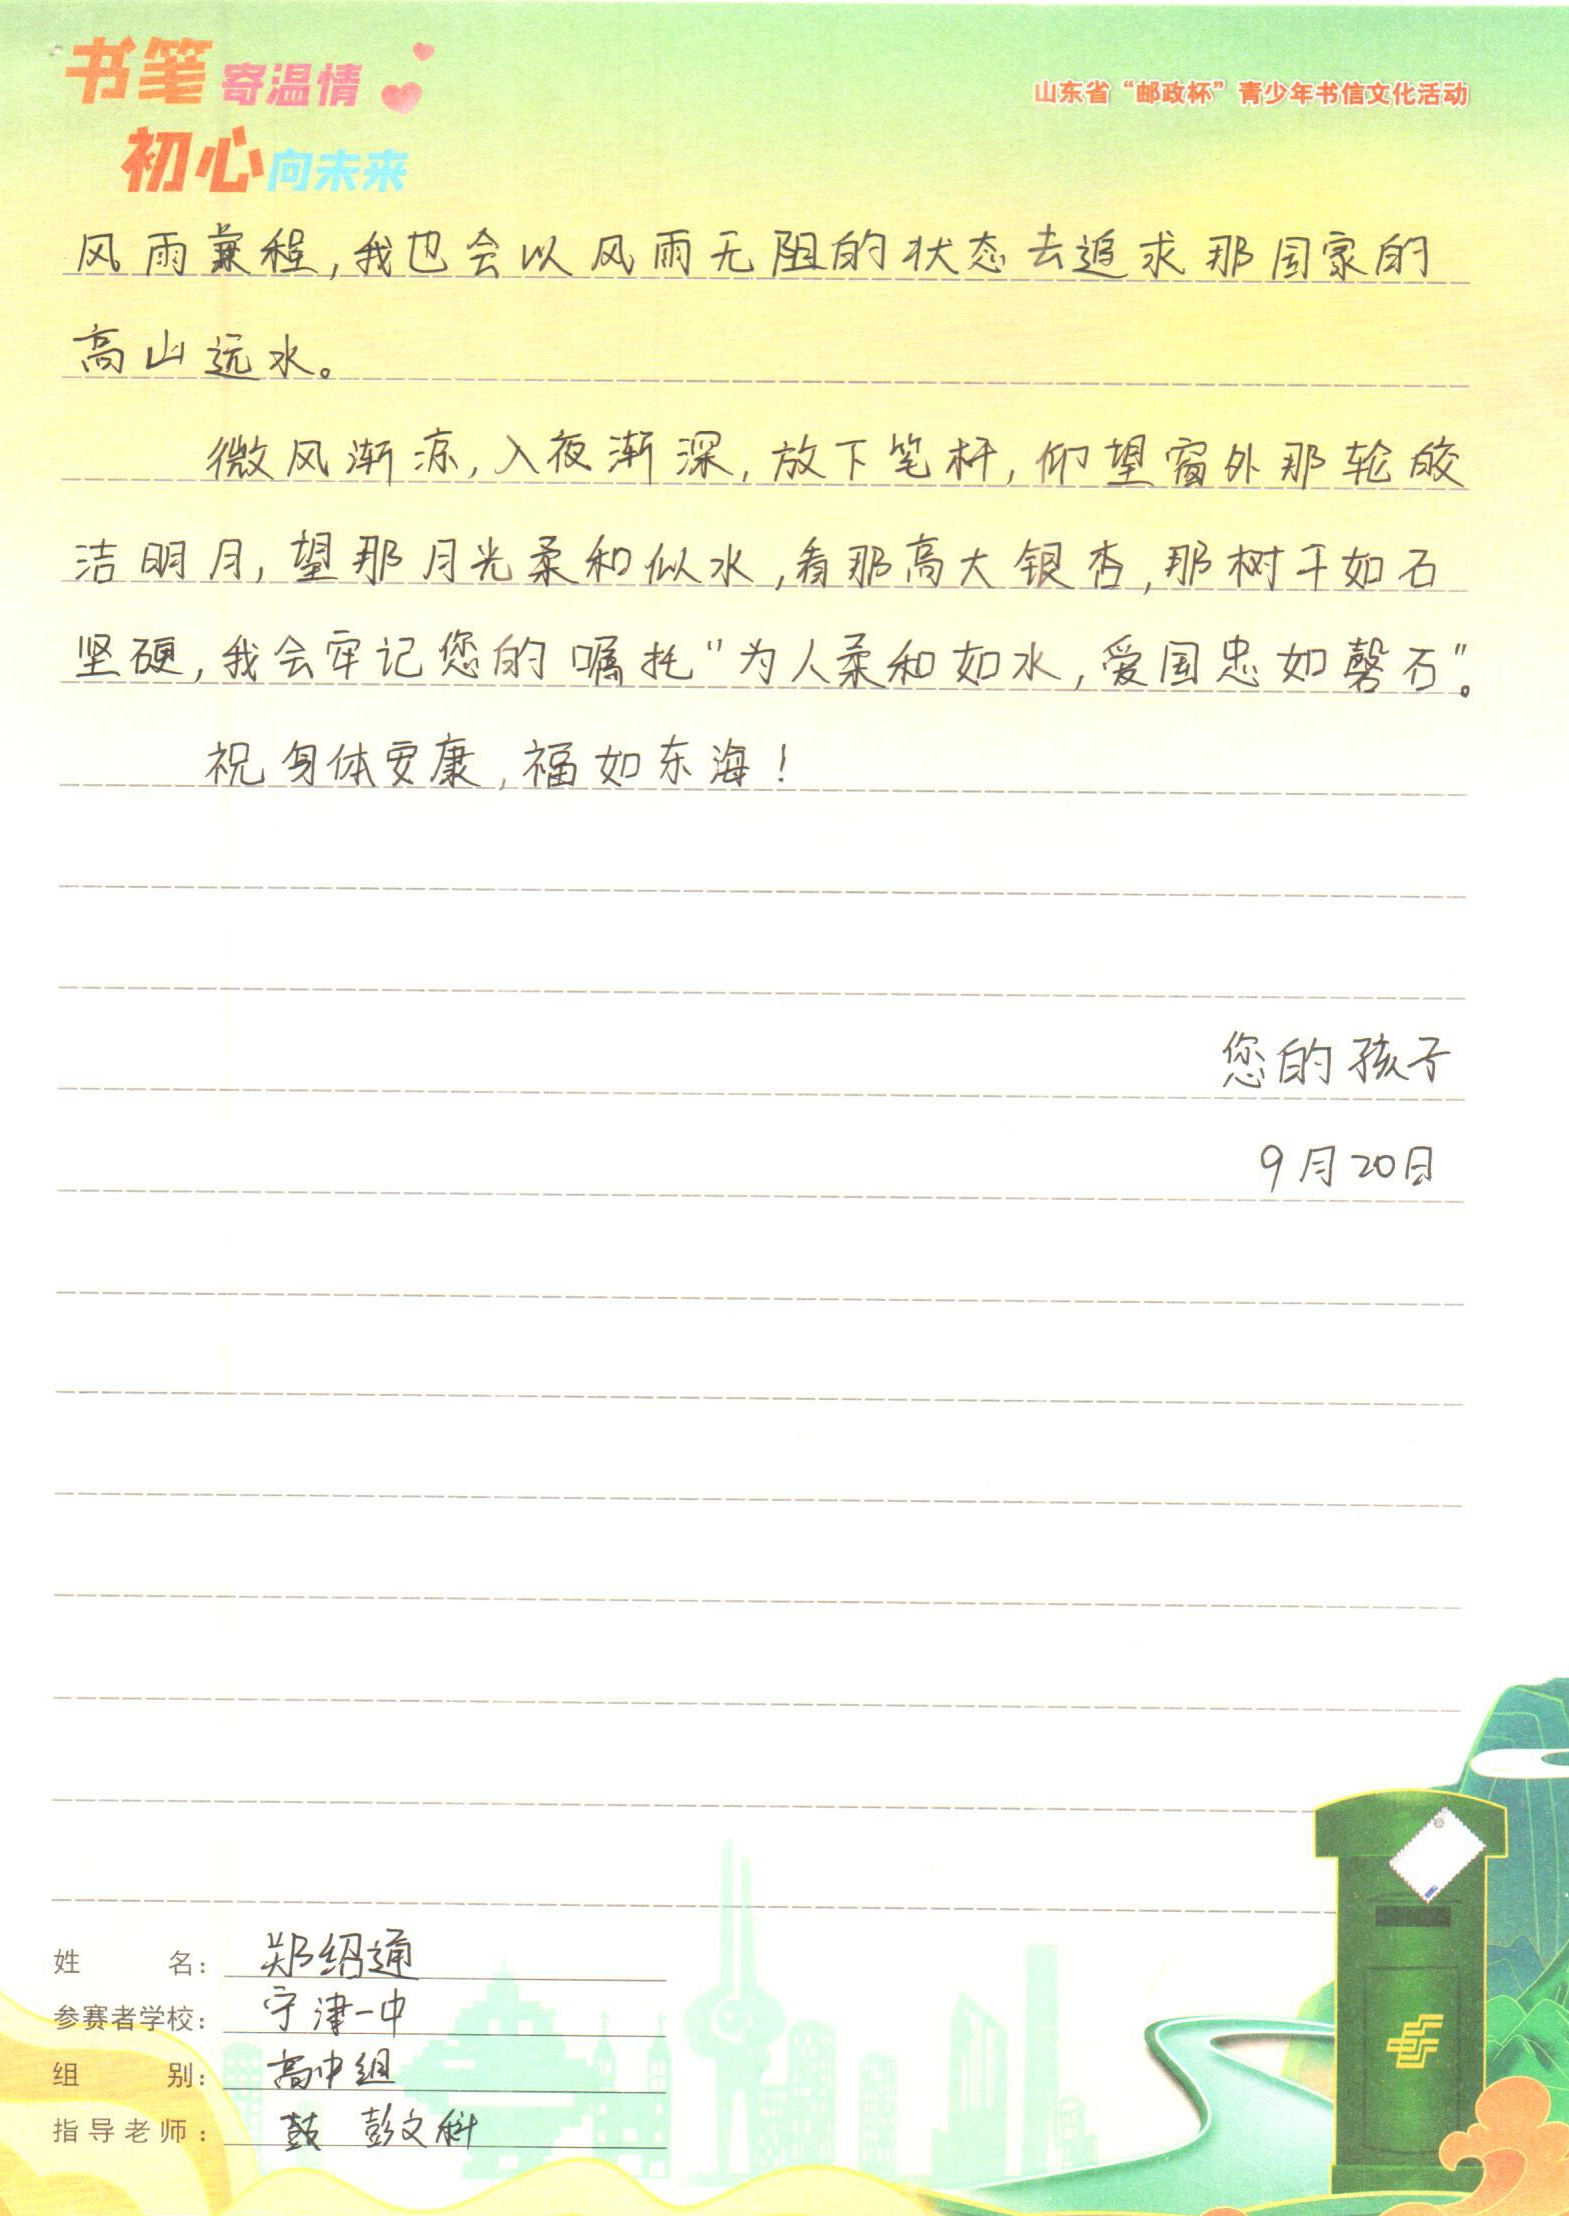 书笔寄温情
初心向未来
山东省“邮政杯”青少年书信文化活动
风雨兼程,我也会以风雨无阻的状态去追求那国家的
高山远水。
微风渐凉,入夜渐深,放下笔杆,仰望窗外那轮皎
洁明月,望那月光柔和似水,看那高大银杏,那树干如石
坚硬,我会牢记您的嘱托“为人柔和如水,爱国忠如磬石”。
祝身体安康,福如东海!
您的孩子
9月20日
姓名: 郑绍通
参赛者学校: 宁津一中
组别: 高中组
指导老师: 鼓 彭文科